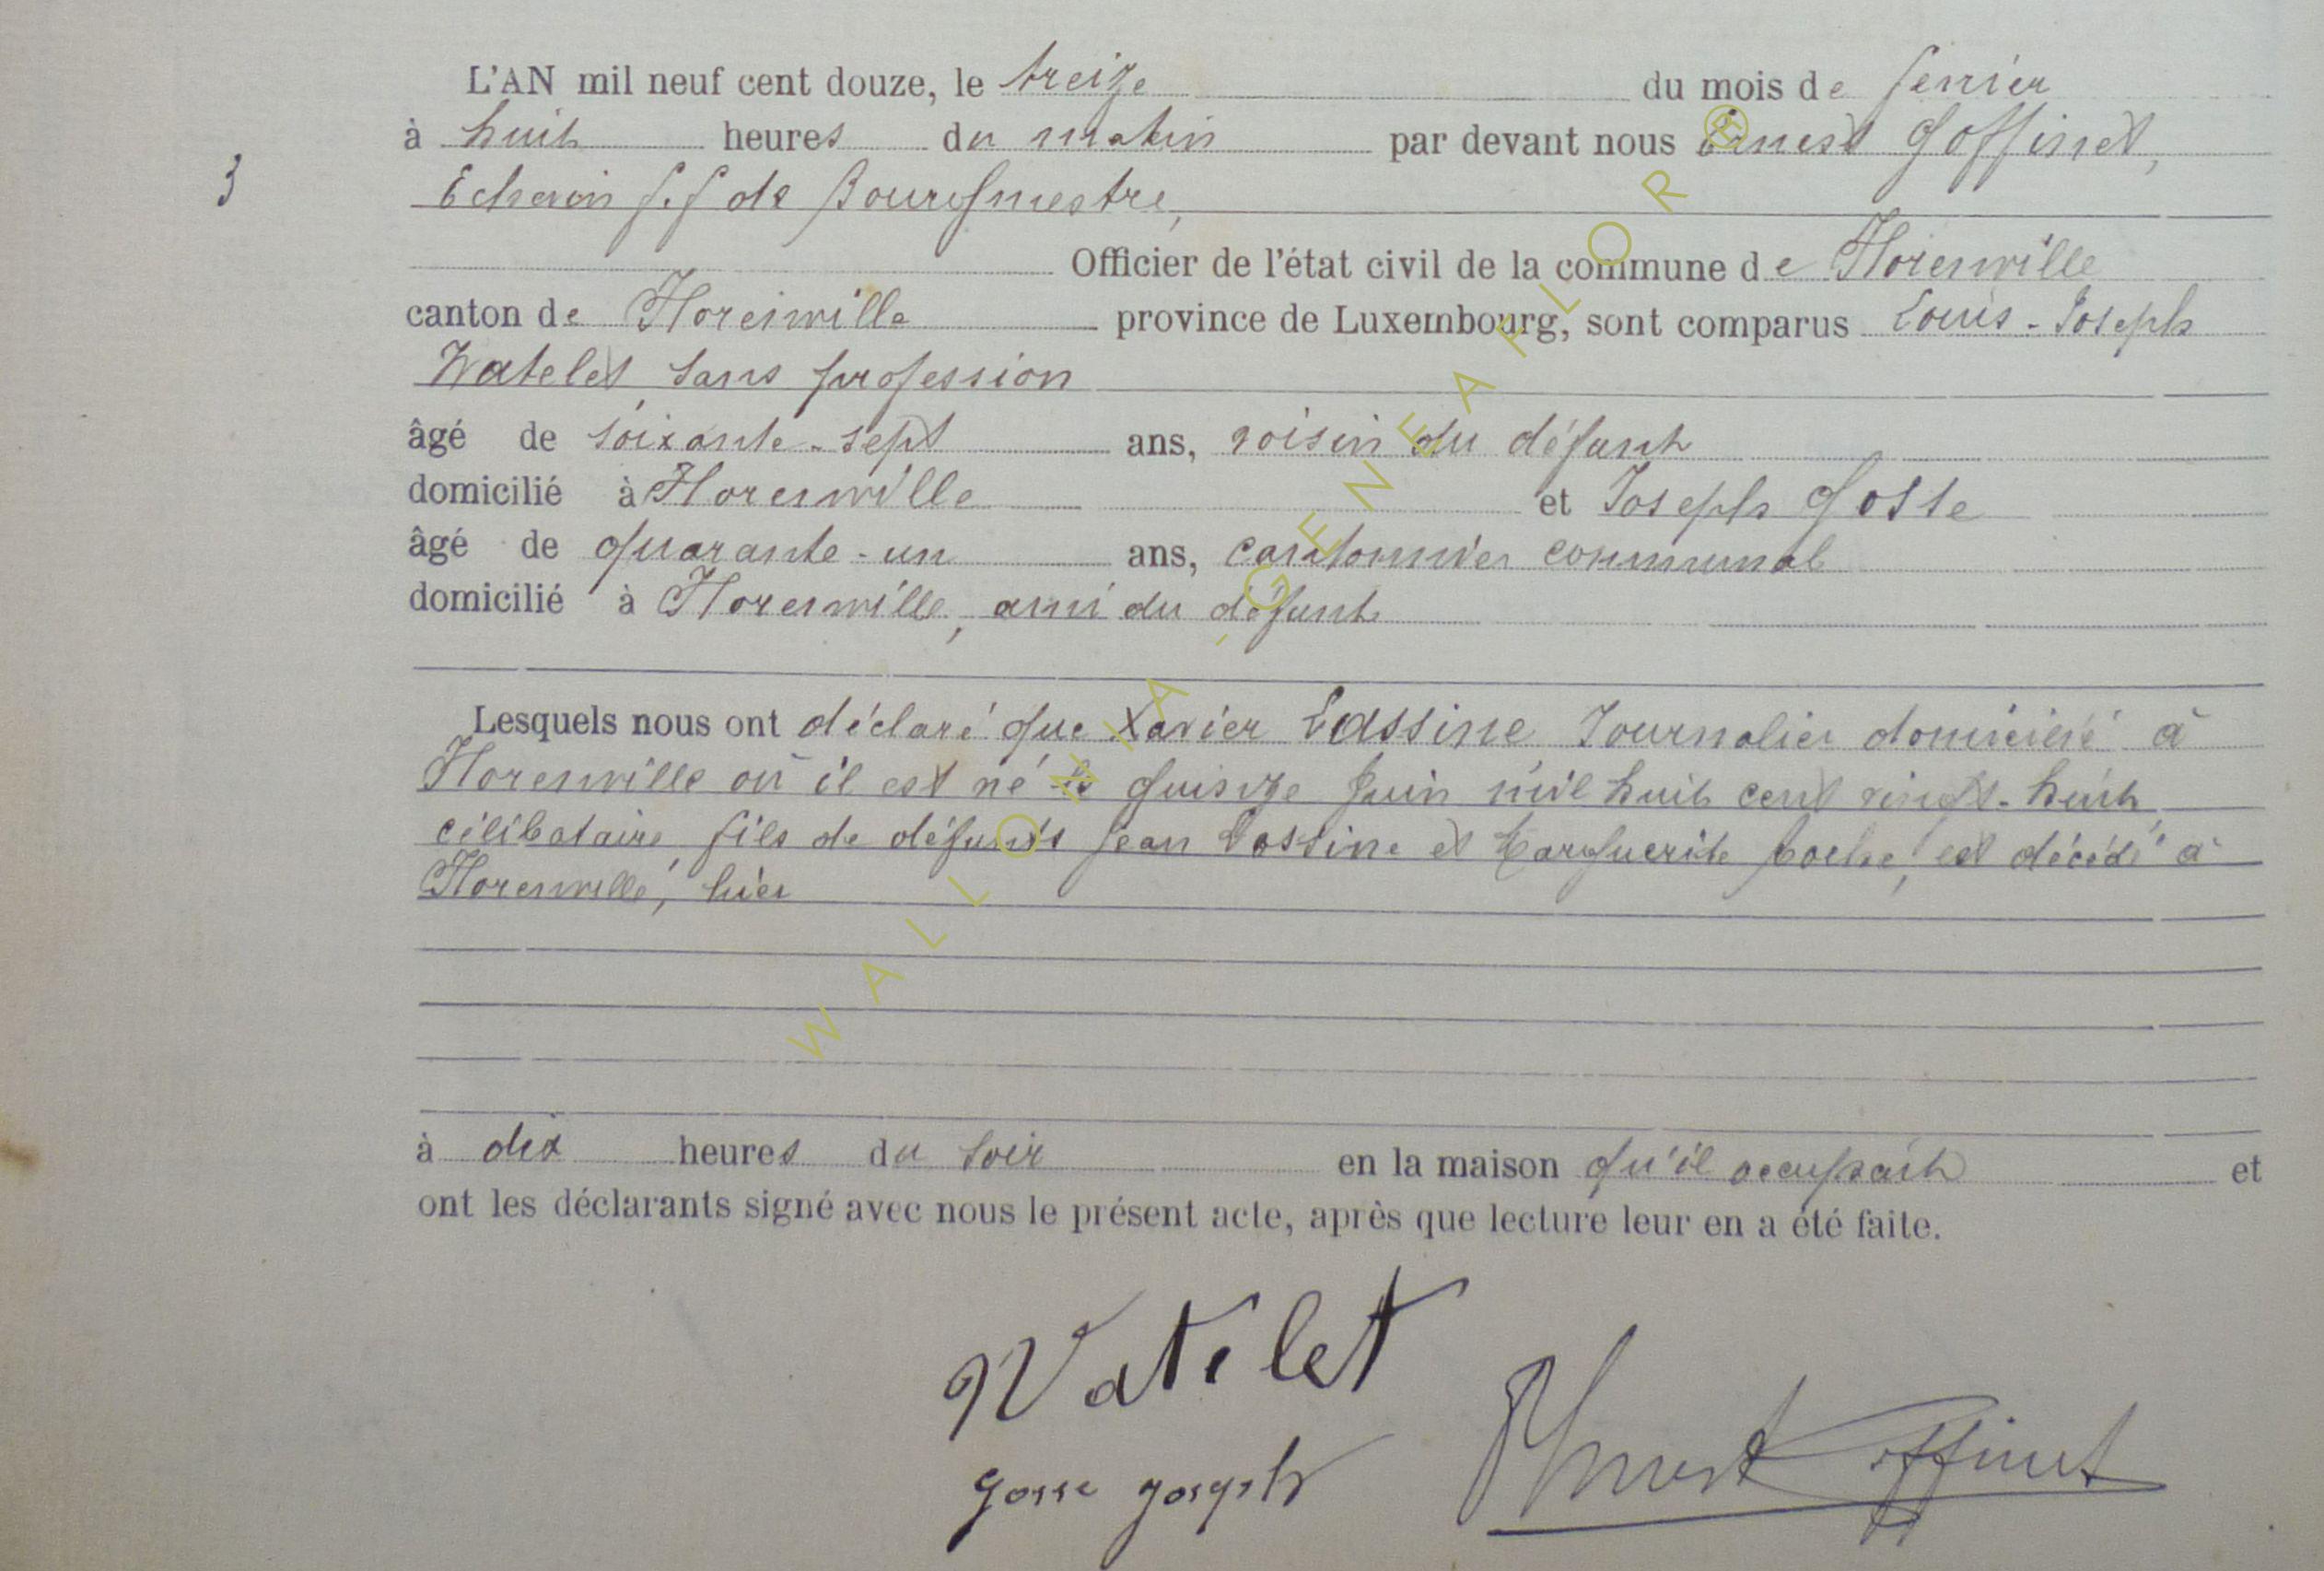 L'AN mil neuf cent douze, le treize du mois de fevrier
à huit heures du matin par devant nous Ernest Goffinet,
3
Echevin f.f de Bourgmestre,
Officier de l'état civil de la commune de Florenville
canton de Florenville province de Luxembourg, sont comparus Louis-Joseph
Watelet, sans profession
âgé de soixante-sept ans, voisin du défunt
domicilié à Florenville et Joseph Gosse
âgé de quarante-un ans, cantonnier communal
domicilié à Florenville, ami du défunt
Lesquels nous ont déclaré que Xavier Lassine Journalier domicilié à
Florenville où il est né le quinze Juin mil huit cent vingt-huit,
célibataire, fils de défunts Jean Lassine et Marguerite, est décédé à
Florenville, hier
à dix heures du soir en la maison qu'il occupait et
ont les déclarants signé avec nous le présent acte, après que lecture leur en a été faite.
Watelet
Gosse Joseph Ernest Goffinet
WALLONIA - GENEAFLORE ®